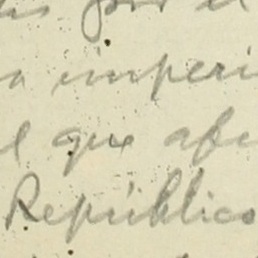 por el
a imperi
que afe
República